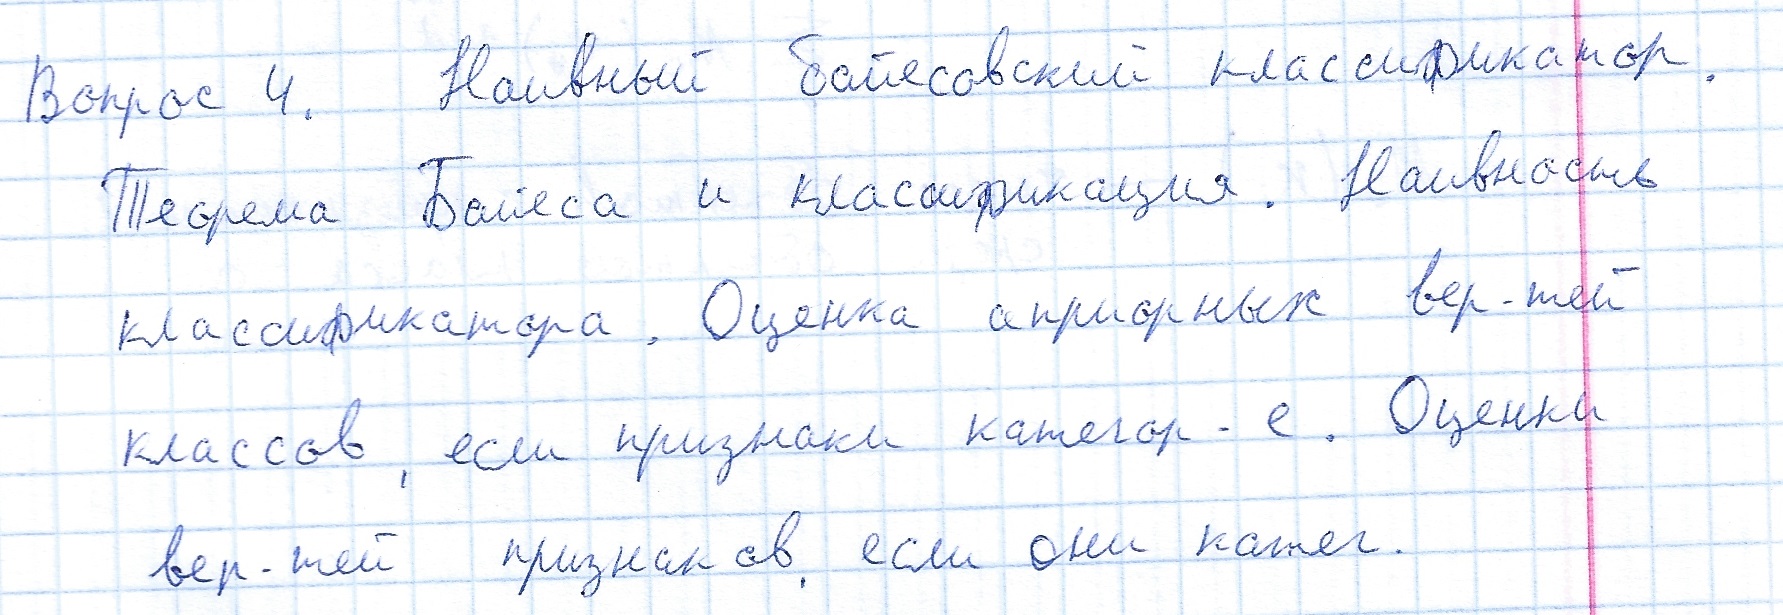 Вопрос 4. Наивный байесовский классификатор.
Теорема Байеса и классификация. Наивность
классификатора. Оценка априорных вер-тей
классов, если признаки категор-е. Оценки
вер-тей признаков, если они катег.